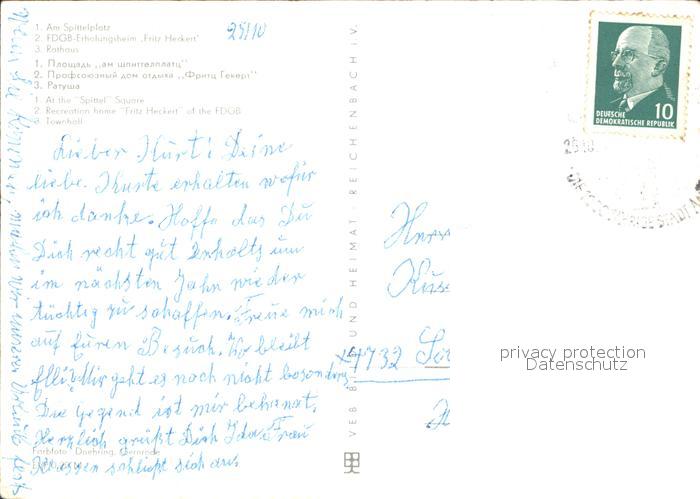 1. Am Spittelplatz
2. FDGB-Erholungsheim „Fritz Heckert"
3. Rathaus
1. Площадь „ам шпиттелплатц"
2. Профсоюзный дом отдыха „Фритц Гекерт"
3. Ратуша
1. At the "Spittel" Square
2. Recreation home "Fritz Heckert" of the FDGB
3. Townhall
25/10
Lieber Kurt! Deine
liebe Karte erhalten wofür
ich danke. Hoffe das Du
Dich recht gut erholts um
im nächsten Jahr wieder
tüchtig zu schaffen. Freue mich
auf Euren Besuch. Wo bleibt
Elli? Mir geht es noch nicht besonders
Die Gegend ist mir bekannt.
Herzlich grüßt Dich Ida. Frau
Klassen schließt sich an
Farbfoto: Doehring, Gernrode
VEB BILD UND HEIMAT REICHENBACH I. V.
Herr
4732
DEUTSCHE
DEMOKRATISCHE REPUBLIK
10
privacy protection
Datenschutz